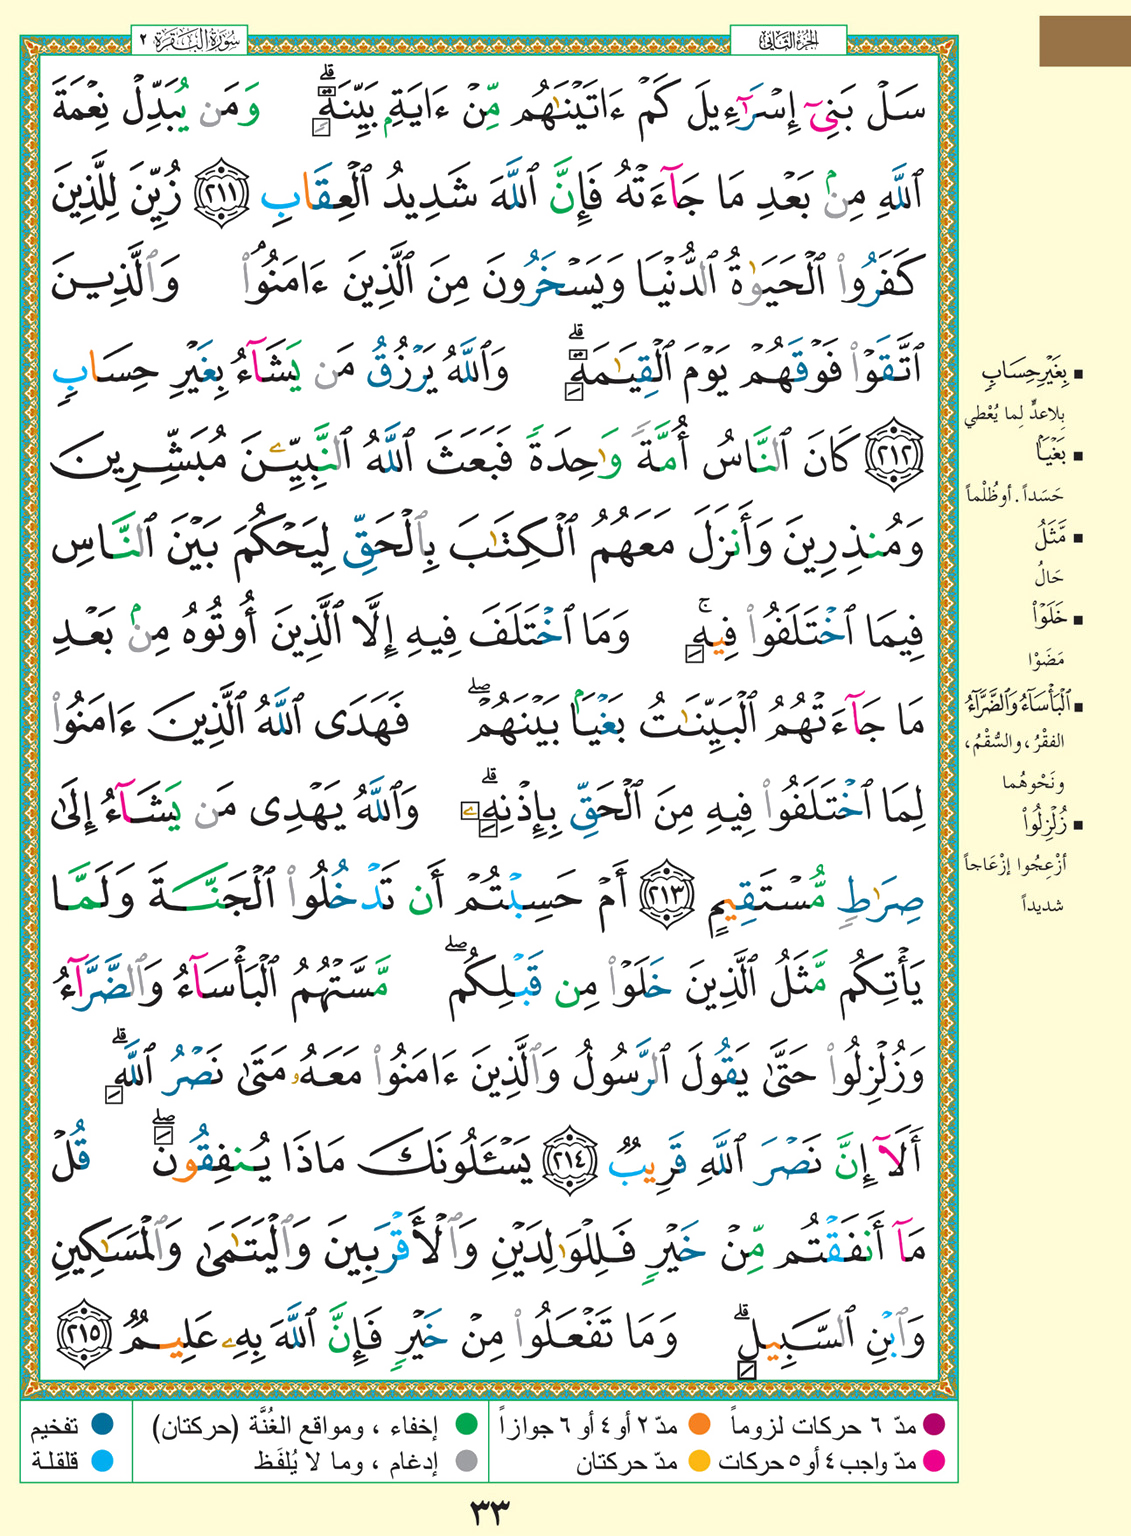 سُورَةُ البَقَرَة ٢
الجُزءُ الثَّانِي
سَلۡ بَنِيٓ إِسۡرَٰٓءِيلَ كَمۡ ءَاتَيۡنَٰهُم مِّنۡ ءَايَةِۭ بَيِّنَةٖۗ وَمَن يُبَدِّلۡ نِعۡمَةَ
ٱللَّهِ مِنۢ بَعۡدِ مَا جَآءَتۡهُ فَإِنَّ ٱللَّهَ شَدِيدُ ٱلۡعِقَابِ ٢١١ زُيِّنَ لِلَّذِينَ
كَفَرُواْ ٱلۡحَيَوٰةُ ٱلدُّنۡيَا وَيَسۡخَرُونَ مِنَ ٱلَّذِينَ ءَامَنُواْۘ وَٱلَّذِينَ
ٱتَّقَوۡاْ فَوۡقَهُمۡ يَوۡمَ ٱلۡقِيَٰمَةِۗ وَٱللَّهُ يَرۡزُقُ مَن يَشَآءُ بِغَيۡرِ حِسَابٖ
٢١٢ كَانَ ٱلنَّاسُ أُمَّةٗ وَٰحِدَةٗ فَبَعَثَ ٱللَّهُ ٱلنَّبِيِّـۧنَ مُبَشِّرِينَ
وَمُنذِرِينَ وَأَنزَلَ مَعَهُمُ ٱلۡكِتَٰبَ بِٱلۡحَقِّ لِيَحۡكُمَ بَيۡنَ ٱلنَّاسِ
فِيمَا ٱخۡتَلَفُواْ فِيهِۚ وَمَا ٱخۡتَلَفَ فِيهِ إِلَّا ٱلَّذِينَ أُوتُوهُ مِنۢ بَعۡدِ
مَا جَآءَتۡهُمُ ٱلۡبَيِّنَٰتُ بَغۡيَۢا بَيۡنَهُمۡۖ فَهَدَى ٱللَّهُ ٱلَّذِينَ ءَامَنُواْ
لِمَا ٱخۡتَلَفُواْ فِيهِ مِنَ ٱلۡحَقِّ بِإِذۡنِهِۦۗ وَٱللَّهُ يَهۡدِي مَن يَشَآءُ إِلَىٰ
صِرَٰطٖ مُّسۡتَقِيمٍ ٢١٣ أَمۡ حَسِبۡتُمۡ أَن تَدۡخُلُواْ ٱلۡجَنَّةَ وَلَمَّا
يَأۡتِكُم مَّثَلُ ٱلَّذِينَ خَلَوۡاْ مِن قَبۡلِكُمۖ مَّسَّتۡهُمُ ٱلۡبَأۡسَآءُ وَٱلضَّرَّآءُ
وَزُلۡزِلُواْ حَتَّىٰ يَقُولَ ٱلرَّسُولُ وَٱلَّذِينَ ءَامَنُواْ مَعَهُۥ مَتَىٰ نَصۡرُ ٱللَّهِۗ
أَلَآ إِنَّ نَصۡرَ ٱللَّهِ قَرِيبٞ ٢١٤ يَسۡـَٔلُونَكَ مَاذَا يُنفِقُونَۖ قُلۡ
مَآ أَنفَقۡتُم مِّنۡ خَيۡرٖ فَلِلۡوَٰلِدَيۡنِ وَٱلۡأَقۡرَبِينَ وَٱلۡيَتَٰمَىٰ وَٱلۡمَسَٰكِينِ
وَٱبۡنِ ٱلسَّبِيلِۗ وَمَا تَفۡعَلُواْ مِنۡ خَيۡرٖ فَإِنَّ ٱللَّهَ بِهِۦ عَلِيمٞ ٢١٥
■ بِغَيۡرِ حِسَابٖ
بِلا عدٍّ لِما يُعْطي
■ بَغۡيَۢا
حَسَداً . أو ظُلْماً
■ مَّثَلُ
حَالُ
■ خَلَوۡاْ
مَضَوْا
■ ٱلۡبَأۡسَآءُ وَٱلضَّرَّآءُ
الفقْرُ ، والسُّقْمُ ،
ونَحْوهُما
■ زُلۡزِلُواْ
أزْعِجُوا إزْعَاجاً
شديداً
مدّ ٦ حركات لزوماً مدّ ٢ أو ٤ أو ٦ جوازاً إخفاء ، ومواقع الغُنَّة (حركتان) تفخيم
مدّ واجب ٤ أو ٥ حركات مدّ حركتان إدغام ، وما لا يُلفَظ قلقلة
٣٣